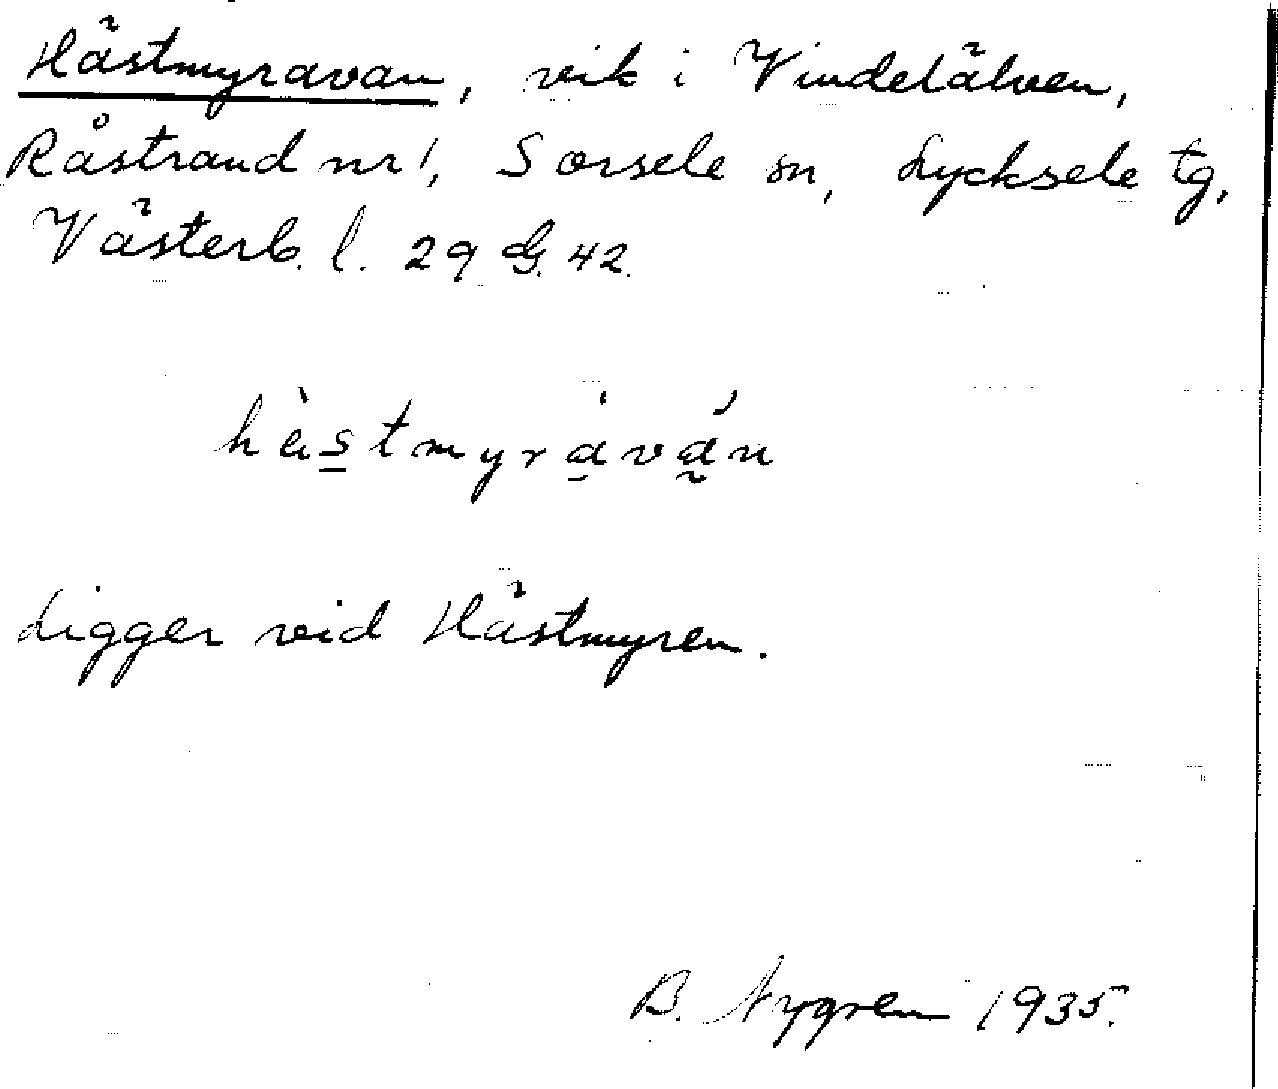 Hästmyravan, vik i Vindelälven,
Råstrand nr 1, Sorsele sn, Lycksele tg,
Västerb. l. 29 G. 42.
hästmyraván
Ligger vid Hästmyren.
B. Nygren 1935.